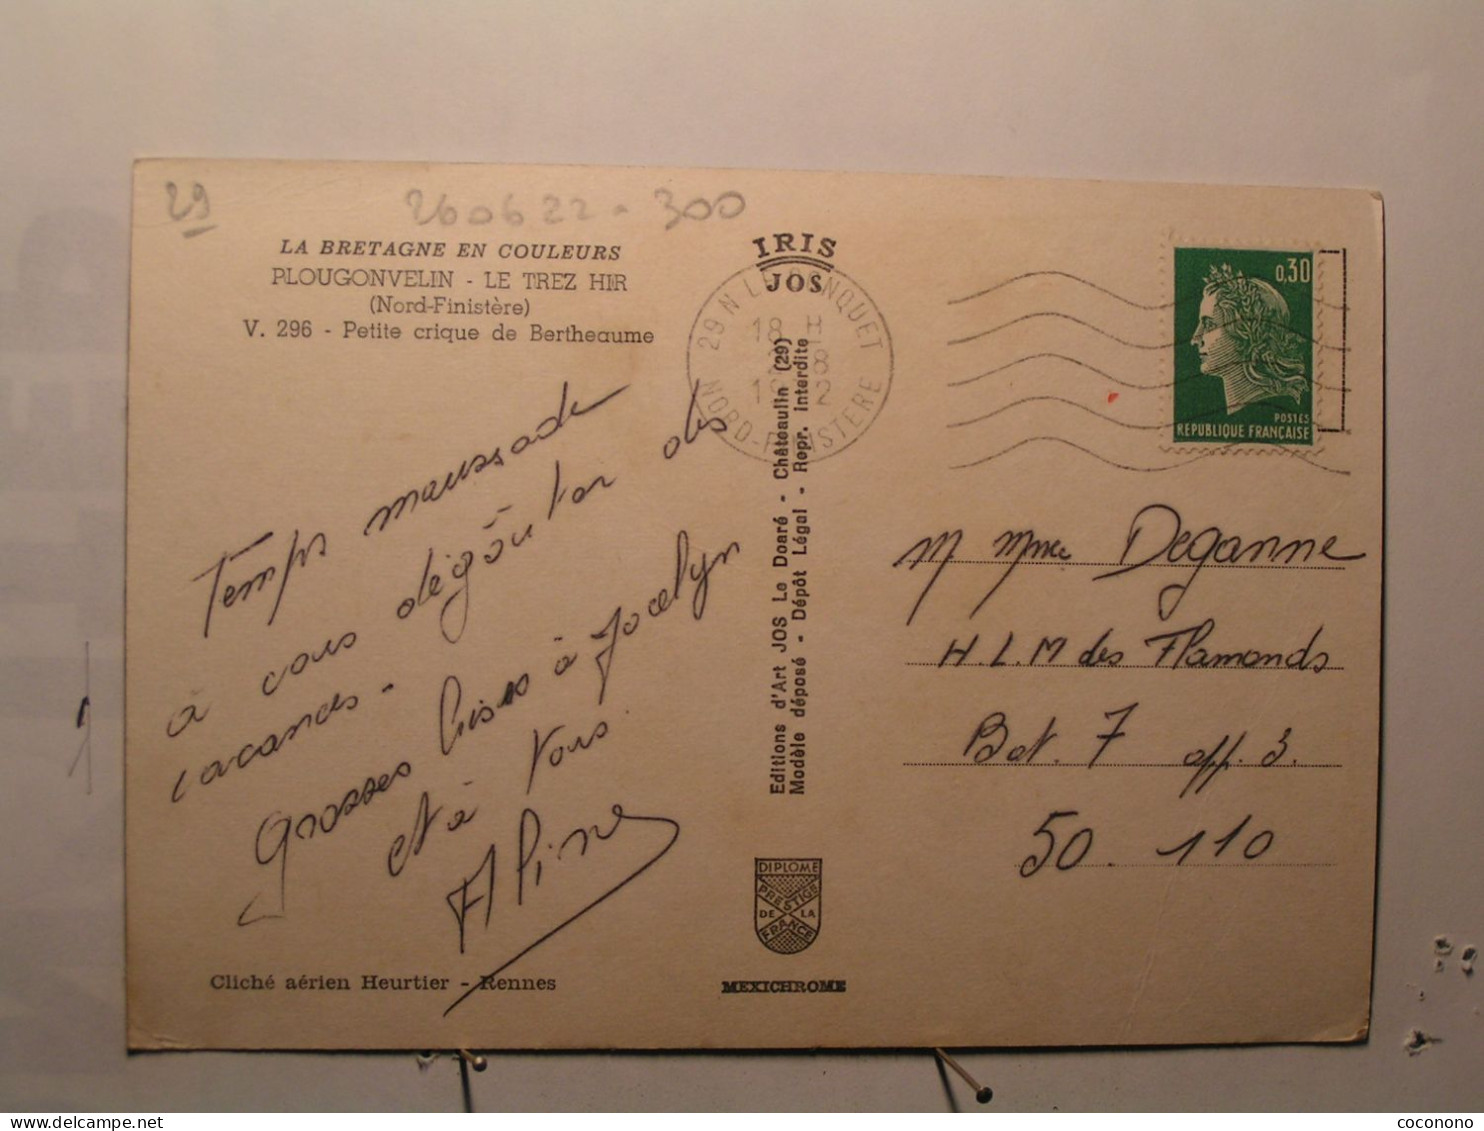 29
260622-300
LA BRETAGNE EN COULEURS
PLOUGONVELIN - LE TREZ HIR
(Nord-Finistère)
V. 296 - Petite crique de Bertheaume
IRIS
JOS
29 N LE CONQUET
18 H
8
2
NORD-FINISTERE
0,30
POSTES
REPUBLIQUE FRANÇAISE
Temps maussade
à vous dégôuter des
vacances -
Grosses bises à Jocelyn
et à vous.
Aline
Editions d'Art JOS Le Doaré - Châteaulin (29)
Modèle déposé - Dépôt Légal - Repr. interdite
M Mme Deganne
H.L.M des Flamands
Bat. 7 app. 3.
50. 110
DIPLOME
PRESTIGE
DE LA
FRANCE
Cliché aérien Heurtier - Rennes
MEXICHROME
coconono